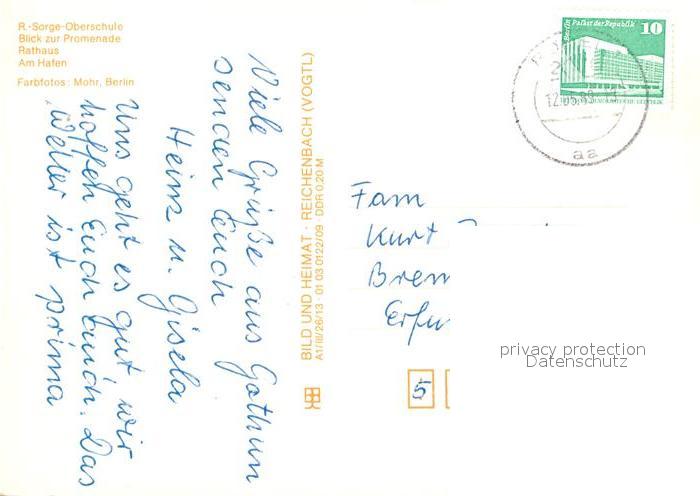 R.-Sorge-Oberschule
Blick zur Promenade
Rathaus
Am Hafen
Farbfotos: Mohr, Berlin
Viele Grüße aus Gothun
senden Euch
Heinz u. Gisela
Uns geht es gut, wir
hoffen Euch auch. Das
Wetter ist prima
BILD UND HEIMAT · REICHENBACH (VOGTL)
A1/III/26/13 · 01 03 0122/09 · DDR 0,20 M
Berlin Palast der Republik
10
12.06.89
aa
Fam
Kurt
Brem
Erfu
5
privacy protection
Datenschutz